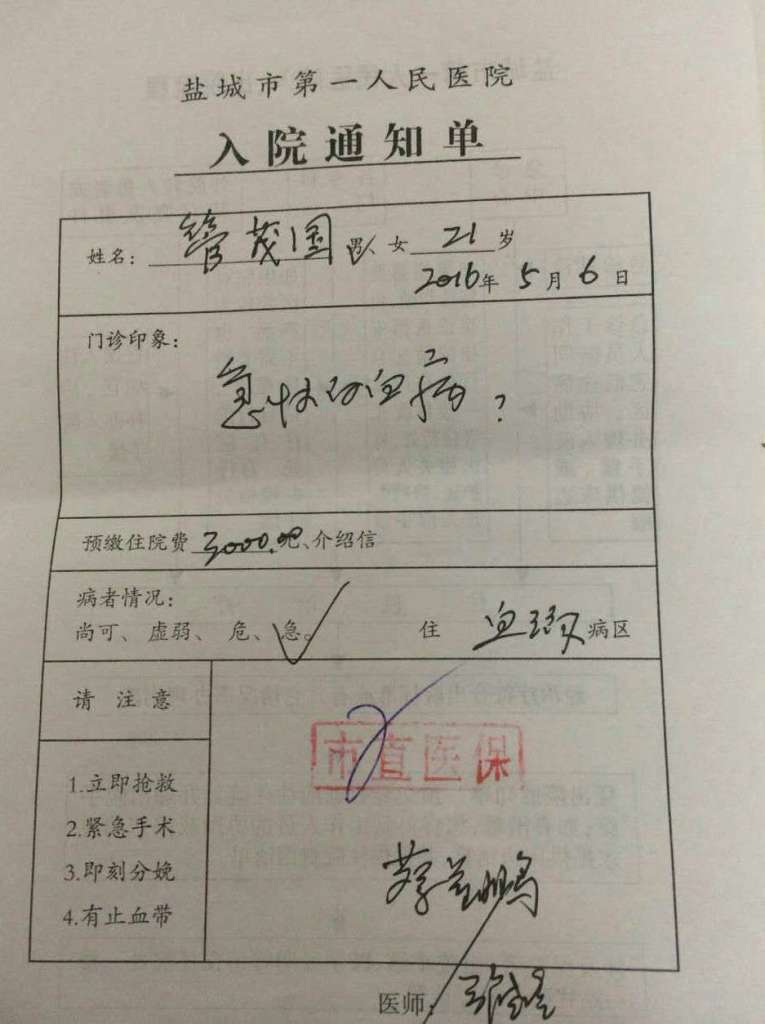 盐城市第一人民医院
入院通知单
姓名：管茂国 男、女 21 岁
2016年 5 月 6 日
门诊印象：
急性白血病？
预缴住院费 3000.吧、介绍信
病者情况：
尚可、虚弱、危、急。 住 血
病区
请注意
市直医保
1.立即抢救
2.紧急手术
3.即刻分娩
4.有止血带
医师：